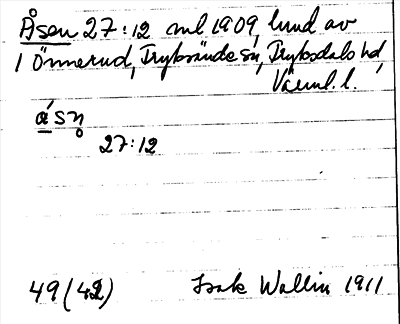 Åsen 27:12 ml 1909, lund av
1 Önnerud, Fryksände sn, Fryksdals hd,
Värml. l.
ǻsn̥
27:12
49 (42)
Isak Wallin 1911